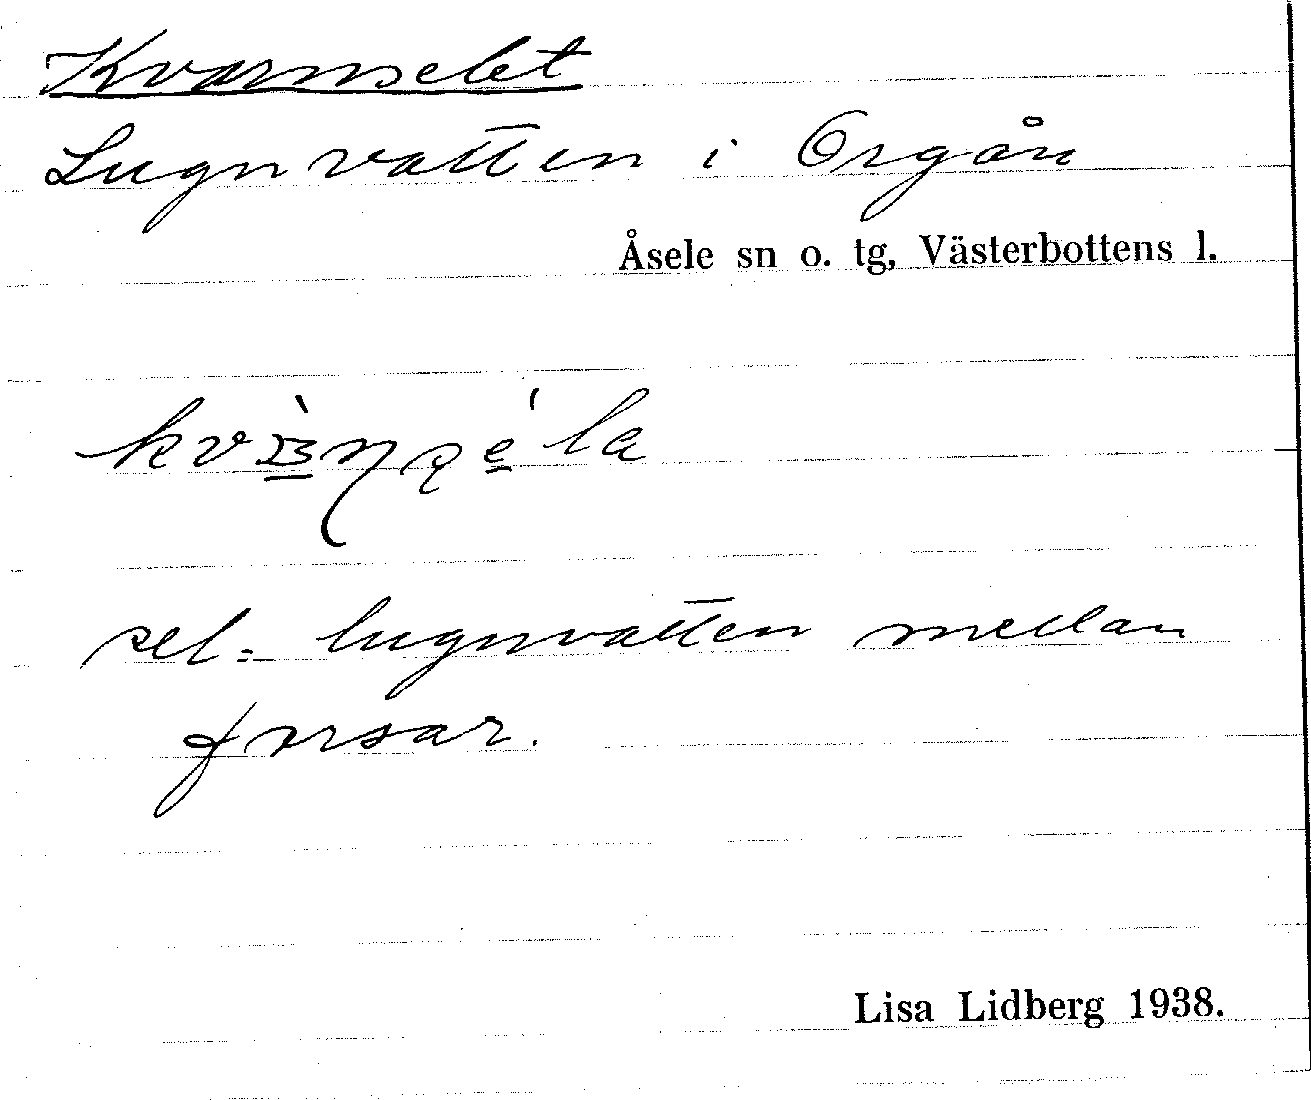 Kvarnselet
Lugnvatten i Orgån
Åsele sn o. tg, Västerbottens l.
sel = lugnvatten mellan
forsar.
Lisa Lidberg 1938.